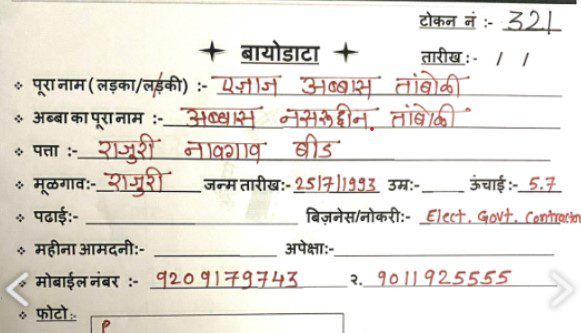 टोकन नं :- 321
बायोडाटा
तारीख :- / /
पूरा नाम ( लड़का/लड़की) :- एजाज अब्बास तांबोळी
अब्बा का पूरा नाम :- अब्बास नसरुद्दीन तांबोळी
पता :- राजुरी नावगाव बीड
मूळगाव:- राजुरी जन्म तारीख:- 25/7/1993 उम्र:- ऊंचाई :- 5.7
पढाई:- बिज़नेस/नोकरी:- Elect. Govt. Contractor
महीना आमदनी:- अपेक्षा:-
मोबाईल नंबर :- 9209179743 २. 9011925555
फोटो:-